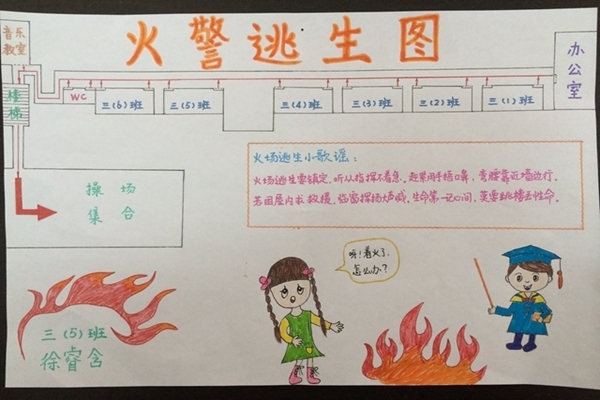 火警逃生图
音乐
教室
办公室
WC
三(6)班
三(5)班
三(4)班
三(3)班
三(2)班
三(1)班
楼梯
操场
集合
火场逃生小歌谣:
火场逃生要镇定,听从指挥不着急,赶紧用手捂口鼻,弯腰靠近墙边行。
若困屋内求救援,临窗挥物大声喊,生命第一记心间,莫要跳楼丢性命。
呀!着火了,
怎么办?
三(5)班
徐睿含